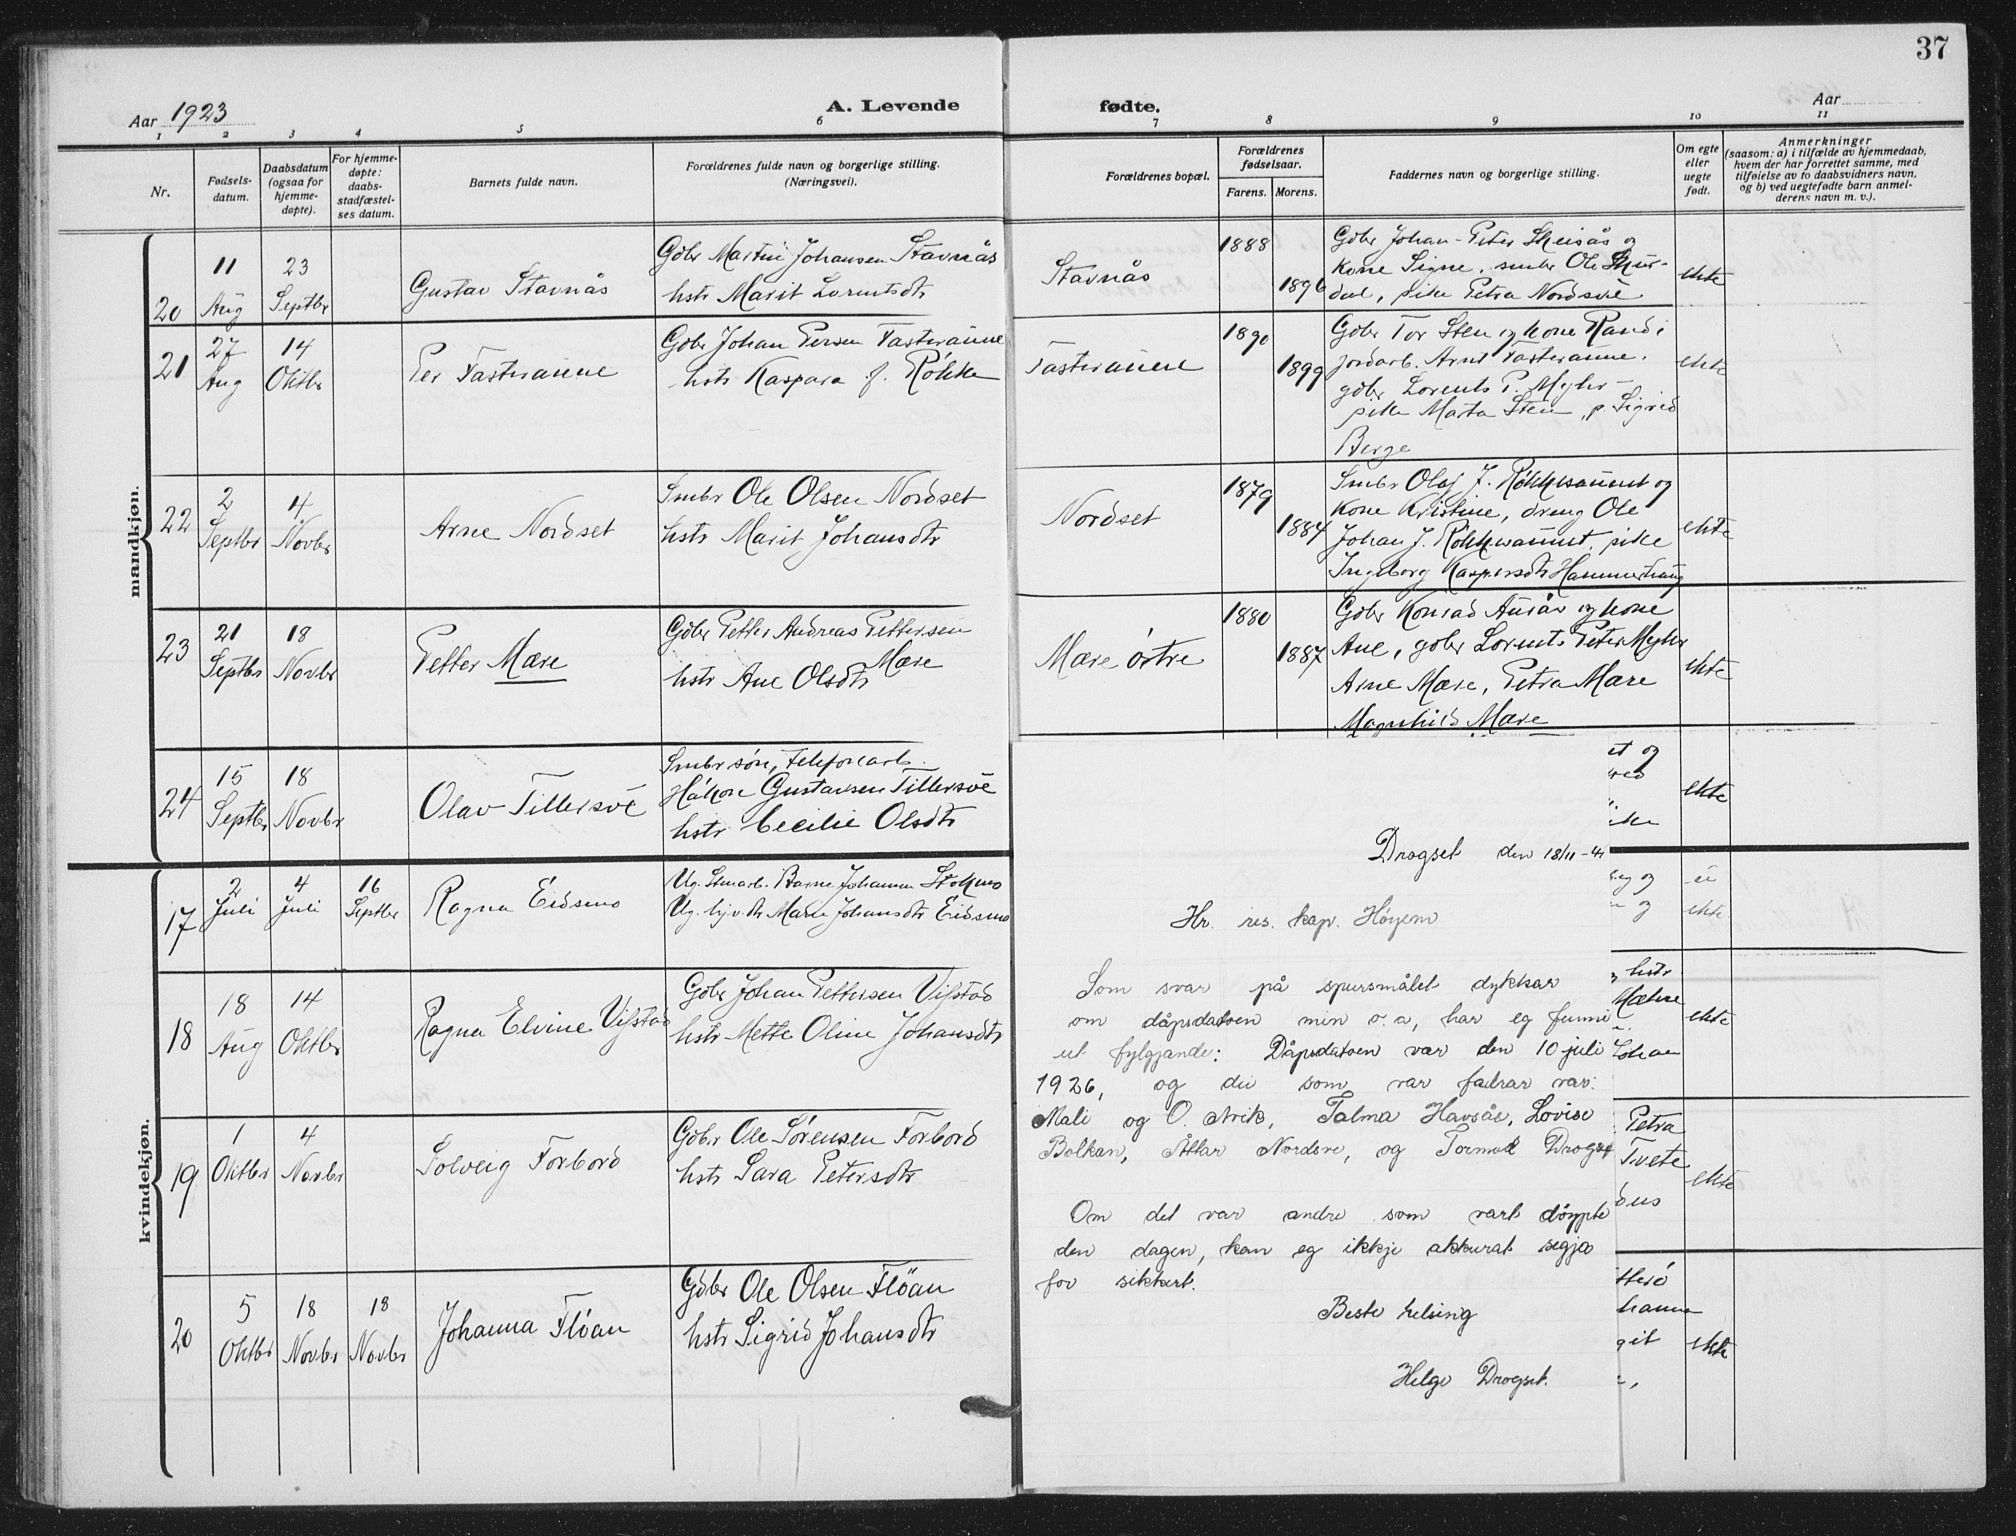 37
Aar 1923
A. Levende
fødte.
Aar
1 2 3 4 5 6 7 8 9 10 11
Nr.
Fødsels-
datum.
Daabsdatum
(ogsaa for
hjemme-
døpte).
For hjemme-
døpte:
daabs-
stadfæstel-
ses datum.
Barnets fulde navn.
Forældrenes fulde navn og borgerlige stilling.
(Næringsvei).
Forældrenes bopæl.
Forældrenes
fødselsaar.
Farens. Morens.
Faddernes navn og borgerlige stilling.
Om egte
eller
uegte
født.
Anmerkninger
(saasom: a) i tilfælde av hjemmedaab,
hvem der har forrettet samme, med
tilføielse av to daabsvidners navn,
og b) ved uegtefødte barn anmel-
derens navn m. v.).
mandkjøn.
20
11
Aug
23
Septbr
Gustav Stavnås
Gdbr Martin Johansen Stavnås
hstr Marit Lorentsdtr
Stavnås
1888
1896
Gdbr Johan-Peter Skeisås og
kone Signe, smbr Ole Skur-
dal, pike Petra Nordsve
ekte
21
27
Aug
14
Oktbr
Per Fasteraune
Gdbr Johan Persen Fasteraune
hstr Kaspara f. Røkke
Fasteraune
1890
1899
Gdbr Tor Sten og kone Randi
jordarb. Arnt Fasteraune,
gdbr Lorents P. Myhr-
pike Marta Sten, p. Sigrid
Berge
ekte
22
2
Septbr
4
Novbr
Arne Nordset
Smbr Ole Olsen Nordset
hstr Marit Johansdtr
Nordset
1879
1884
Smbr Olaf J. Røkkesaunet og
kone Kristine, dreng Ole
Johan J. Røkkesaunet, pike
Ingeborg Kaspersdtr Hammerhaug
ekte
23
21
Septbr
18
Novbr
Petter Mære
Gdbr Petter Andreas Pettersen
Mære
hstr Ane Olsdtr
Mære østre
1880
1887
Gdbr Konrad Ausår og kone
Ane, gdbr Lorents Peter Myhr
Arne Mære, Petra Mære
Magnhild Mære
ekte
24
15
Septbr
18
Novbr
Olav Tillersve
Smbr søn, telefonarb.
Håkon Gustavsen Tillersve
hstr Cecilie Olsdtr
et og
ekte
kvindekjøn.
17
2
Juli
4
Juli
16
Septbr
Ragna Eidsmo
Ug. stenarb. Barne Johannes Stokmo
Ug. tjv. dtr Marie Johansdtr Eidsmo
og
og
ei
ekte
18
18
Aug
14
Oktbr
Ragna Elvine Vifstad
Gdbr Johan Pettersen Vifstad
hstr Mette Oline Johansdtr
hstr
Mæhre
Johan
ekte
19
1
Oktbr
4
Novbr
Solveig Forbord
Gdbr Ole Sørensen Forbord
hstr Sara Petersdtr
Petra
Tvete
ekte
20
5
Oktbr
18
Novbr
18
Novbr
Johanna Fløan
Gdbr Ole Olsen Fløan
hstr Sigrid Johansdtr
ekte
Drogset den 18/11-41
Hr. res. kap. Høyem
Som svar på spursmålet dykkar
om dåpsdatoen min o.a, har eg funni
ut fylgjande: Dåpsdatoen var den 10 juli
1926, og dei som var fadrar var:
Mali og O. Arik, Talma Havsås, Lovise
Bolkan, Åttar Nordsve, og Tormod Drogset
Om det var andre som vart døypte
den dagen, kan eg ikkje akkurat segja
for sikkert.
Beste helsing
Helge Drogset.